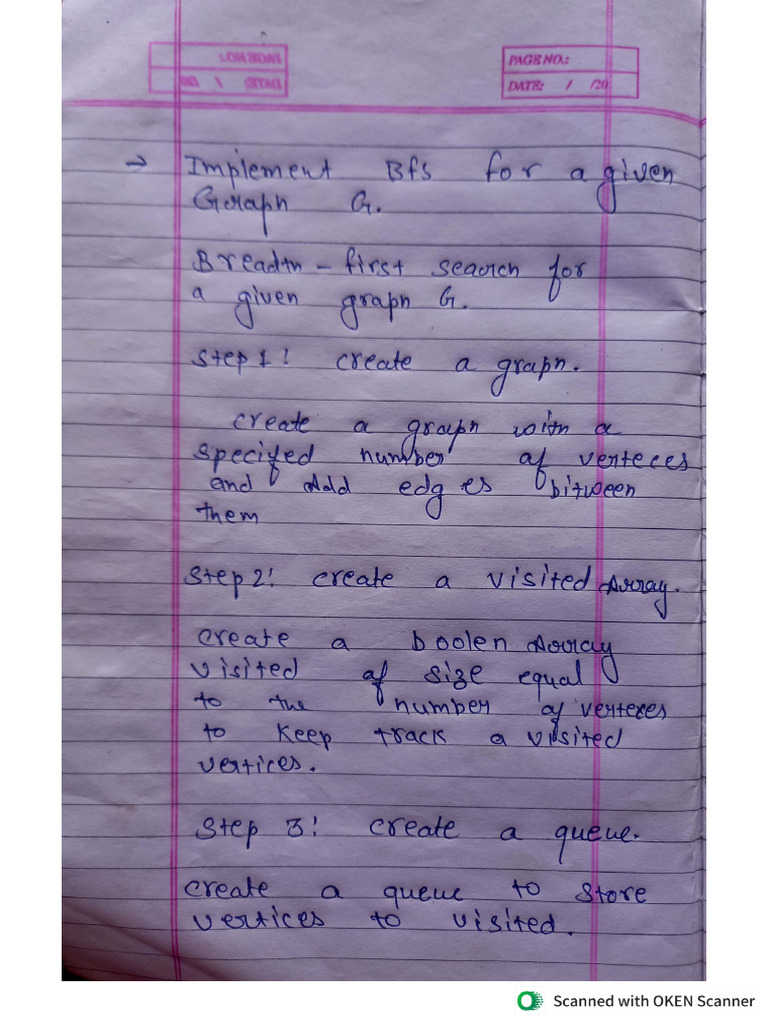 PAGE NO.:
DATE: / /20
→ Implement Bfs for a given
Graph G.
Breadth - first search for
a given graph G.
Step 1! create a graph.
create a graph with a
specifed number of verteces
and Add edges bitween
them
Step 2! create a visited Array.
create a boolen Array
visited of size equal
to the number of vertexes
to keep track a visited
vertices.
Step 3! create a queue.
create a queue to store
vertices to visited.
Scanned with OKEN Scanner